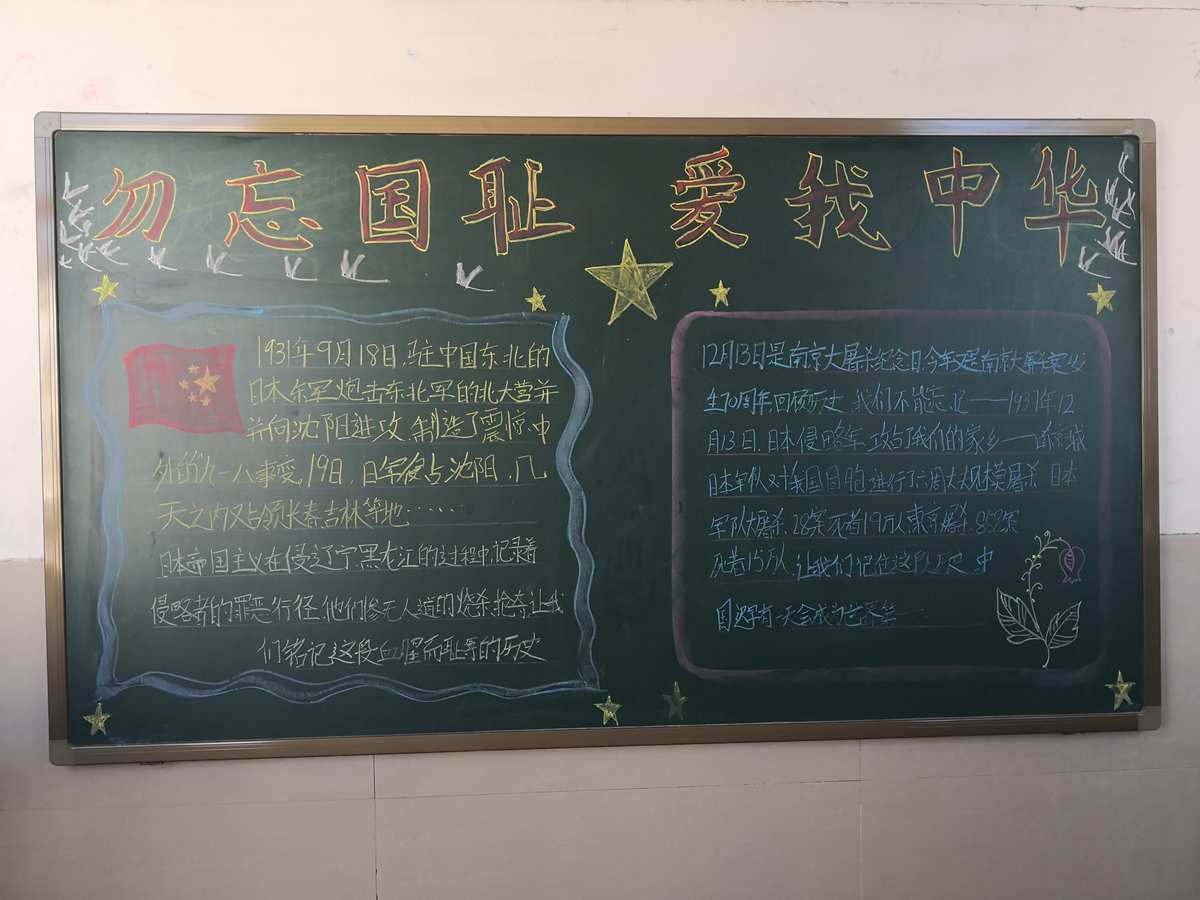 勿忘国耻 爱我中华
1931年9月18日,驻中国东北的
日本东军炮击东北军的北大营并
并向沈阳进攻,制造了震惊中
外的九一八事变,19日,日军侵占沈阳,几
天之内又占领长春吉林等地……
日本帝国主义在侵辽宁黑龙江的过程中,记录着
侵略者的罪恶行径,他们惨无人道的烧杀,抢夺,让我
们铭记这段血腥而耻辱的历史
12月13日是南京大屠杀纪念日,今年是南京大屠杀发
生70周年,回顾历史,我们不能忘记——1937年12
月13日,日本侵略军攻占了我们的家乡——南京城
日本军队对我国同胞进行了六周大规模屠杀 日本
军队大屠杀,28案死者19万人 屠杀858案
死者15万人,让我们记住这段历史,中
国迟早有一天会成为世界第一